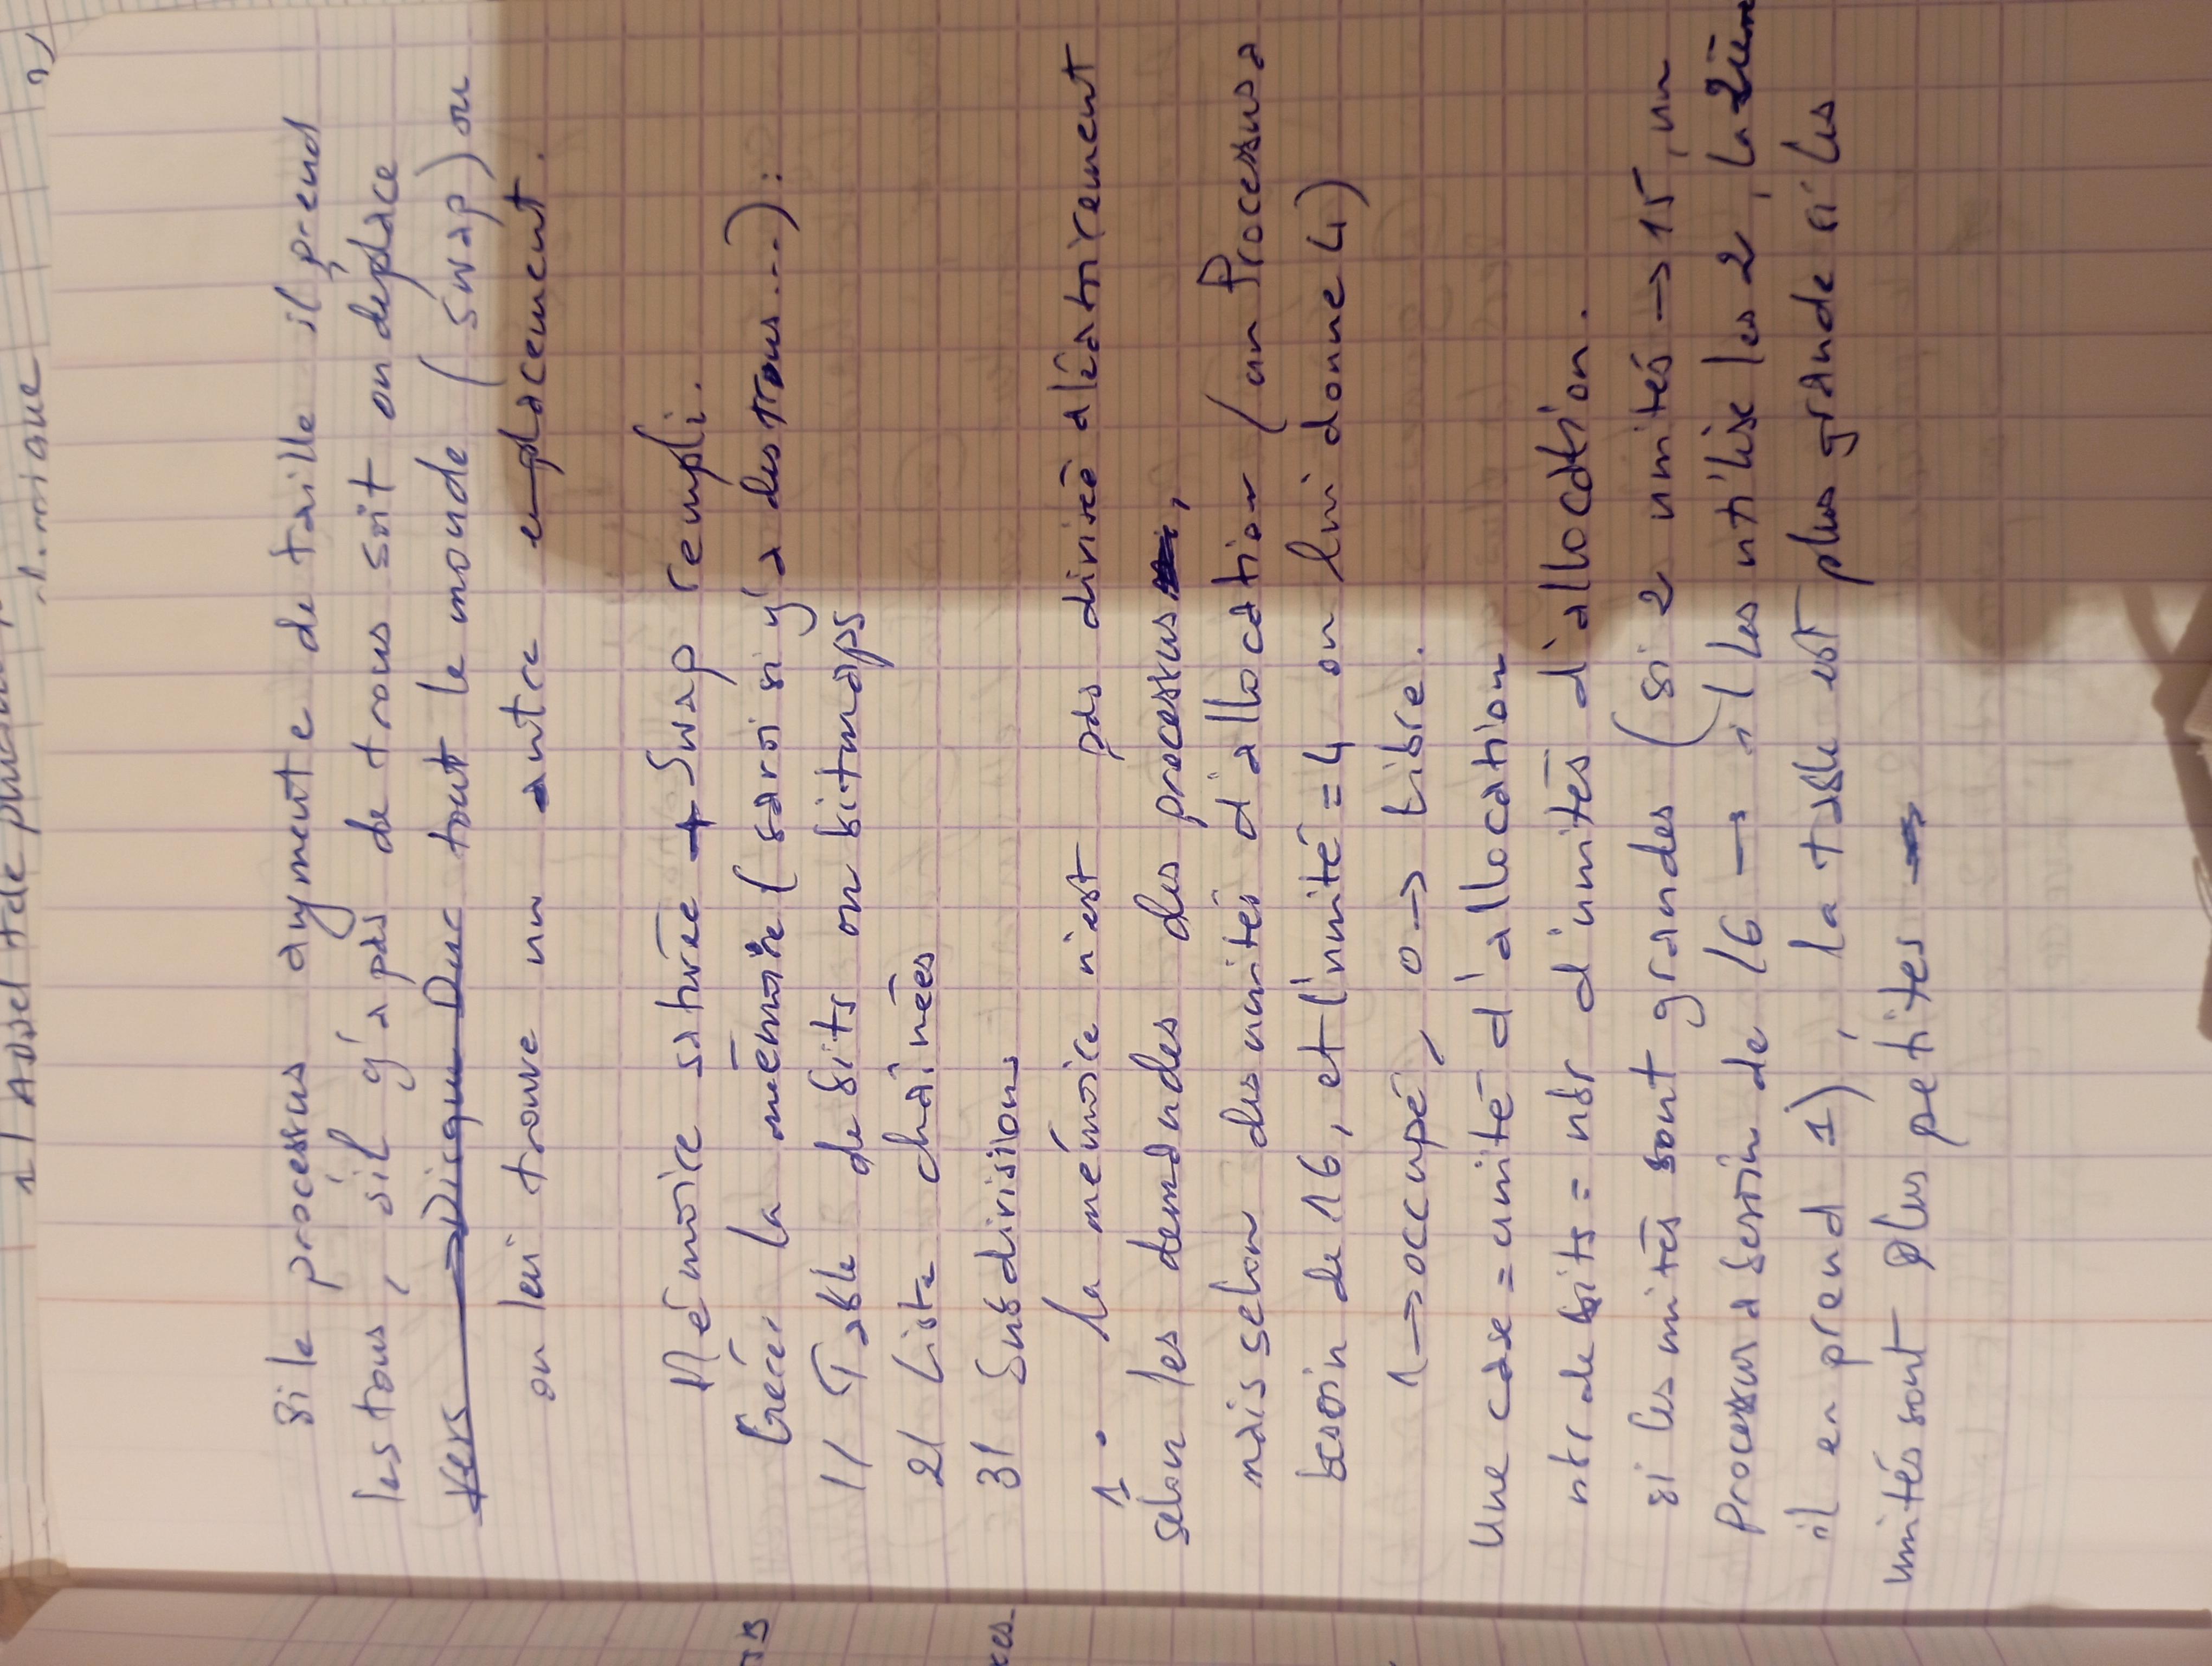 1/ Appel
2/
Si le processus augmente de taille il prend
les tous, s'il y'a pas de trous soit on déplace
vers → Disque Dur tout le monde (swap) ou
on lui trouve un autre emplacement.
Mémoire saturée + Swap rempli.
Gérer la mémoire (savoi si y'a des trous...) :
1/ Table de bits ou bitmaps
2/ Liste chaînées
3/ Subdivisions
1. la mémoire n'est pas divisée aléatoirement
selon les demandes des processus,
mais selon des unités d'allocation (un Processus a
besoin de 16, et l'unité = 4 on lui donne 4)
1 → occupé, 0 → libre.
Une case = unité d'allocation
nbr de bits = nbr d'unités d'allocation.
si les unités sont grandes (si 2 unités → 15, un
Processus a besoin de 16 → il les utilise les 2, la 2ième
il en prend 1), la table est plus grande si les
unités sont plus petites